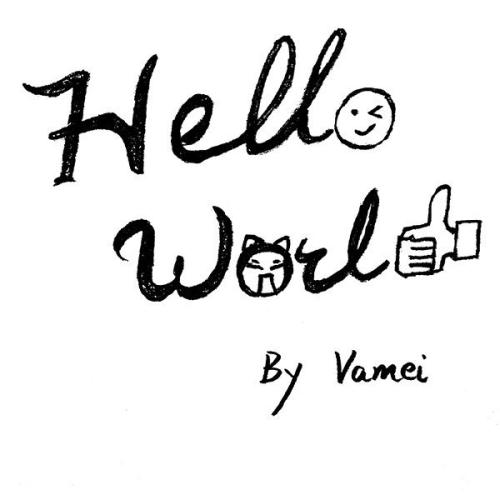 Hello
World
By Vamei